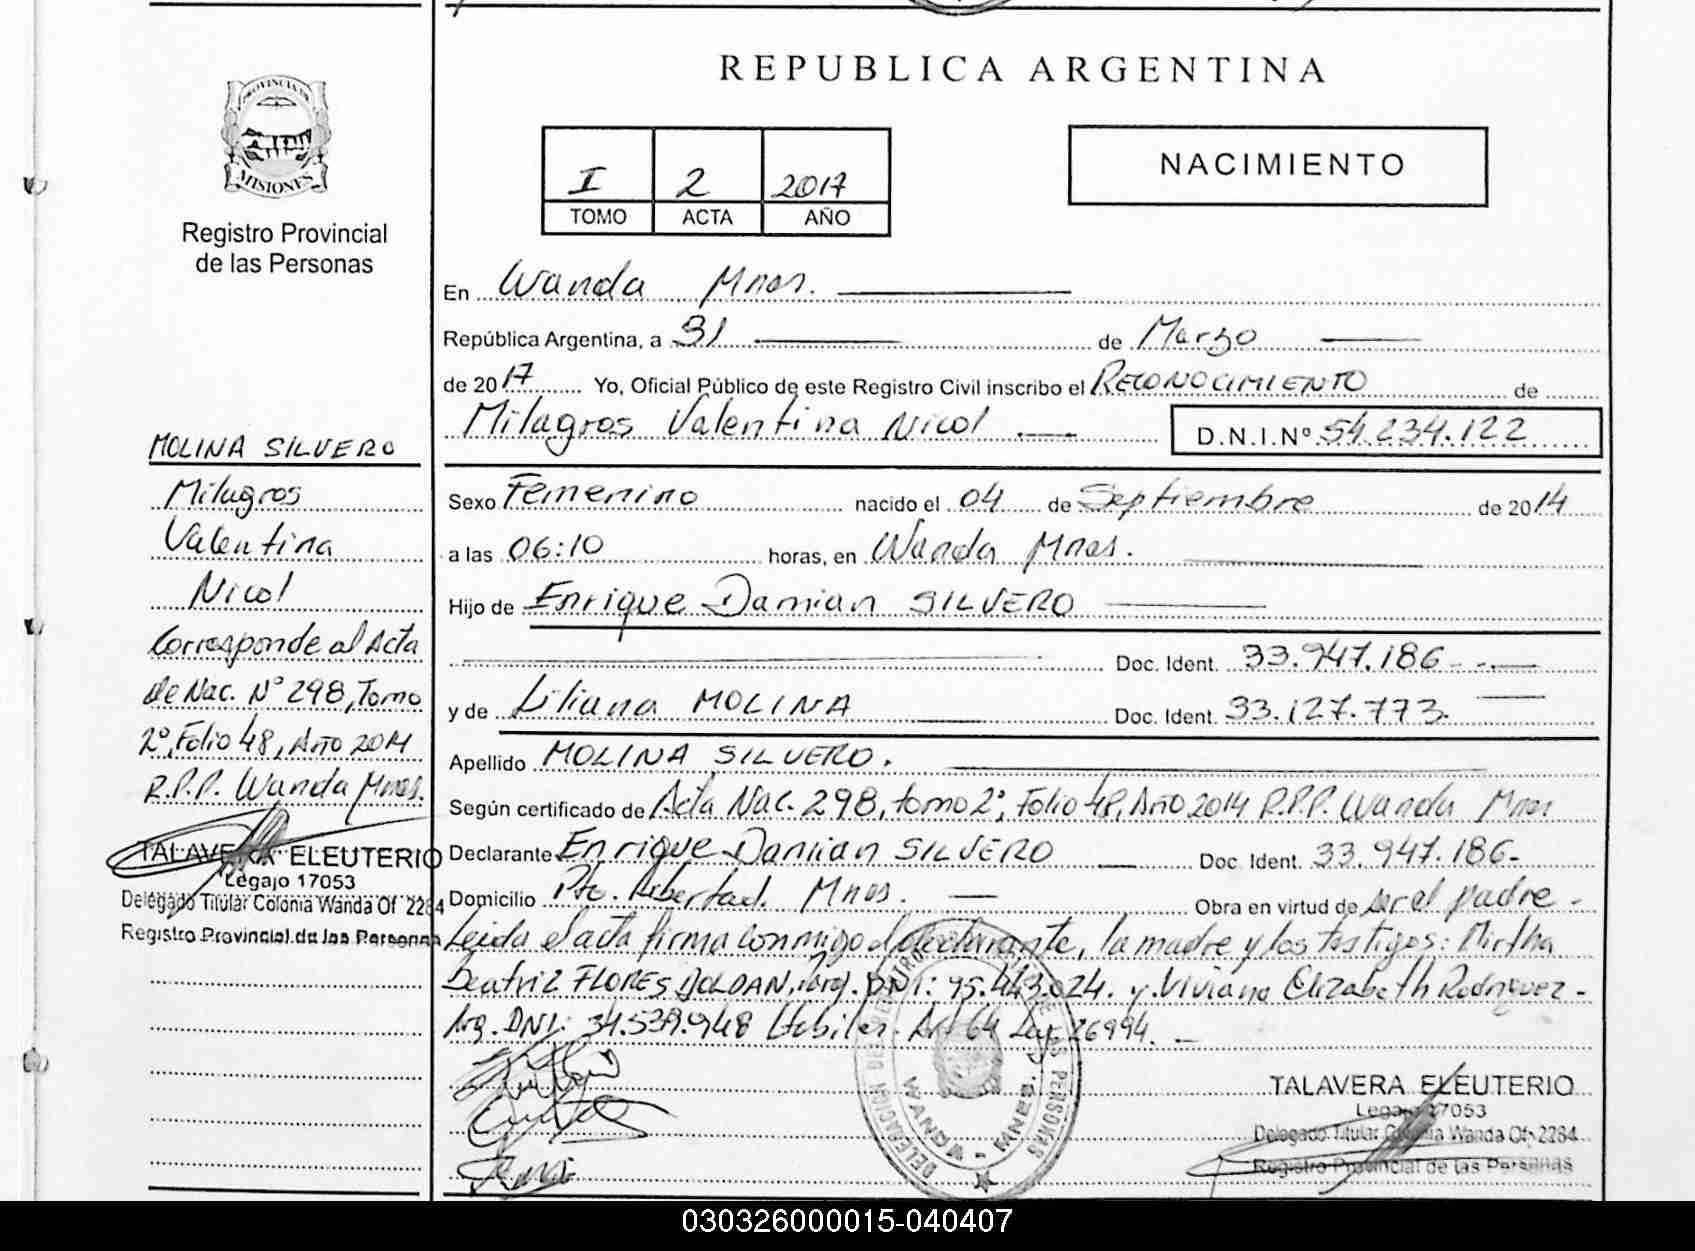 REPUBLICA ARGENTINA
PROVINCIA DE
MISIONES
Registro Provincial
de las Personas
I 2 2017
TOMO ACTA AÑO
NACIMIENTO
En Wanda Mnes.
República Argentina, a 31 de Marzo
de 2017 Yo, Oficial Público de este Registro Civil inscribo el RECONOCIMIENTO de
Milagros Valentina Nicol D.N.I.Nº 54.234.122
Sexo Femenino nacido el 04 de Septiembre de 2014
a las 06:10 horas, en Wanda Mnes.
Hijo de Enrique Damian SILVERO
Doc. Ident. 33.947.186
y de Liliana MOLINA Doc. Ident. 33.127.773
Apellido MOLINA SILVERO.
Según certificado de Acta Nac. 298, tomo 2º, Folio 48, Año 2014 R.P.P. Wanda Mnes
Declarante Enrique Damian SILVERO Doc. Ident. 33.947.186-
Domicilio Pto. Libertad. Mnes. Obra en virtud de ser el padre -
Leida el acta firma conmigo el declarante, la madre y los testigos: Mirtha
Beatriz FLORES ROLDAN, Arg. DNI: 95.443.024. y Viviana Elizabeth Rodriguez -
Arg. DNI: 34.539.948 Habiles. Art 64 Ley 26994.
MOLINA SILVERO
Milagros
Valentina
Nicol
Corresponde al Acta
de Nac. Nº 298, Tomo
2º, Folio 48, Año 2014
R.P.P. Wanda Mnes.
TALAVERA ELEUTERIO
Legajo 17053
Delegado Titular Colonia Wanda Of 2284
Registro Provincial de las Personas
WANDA - MNES.
TALAVERA ELEUTERIO
Legajo 17053
Delegado Titular Colonia Wanda Of. 2284
Registro Provincial de las Personas
030326000015-040407